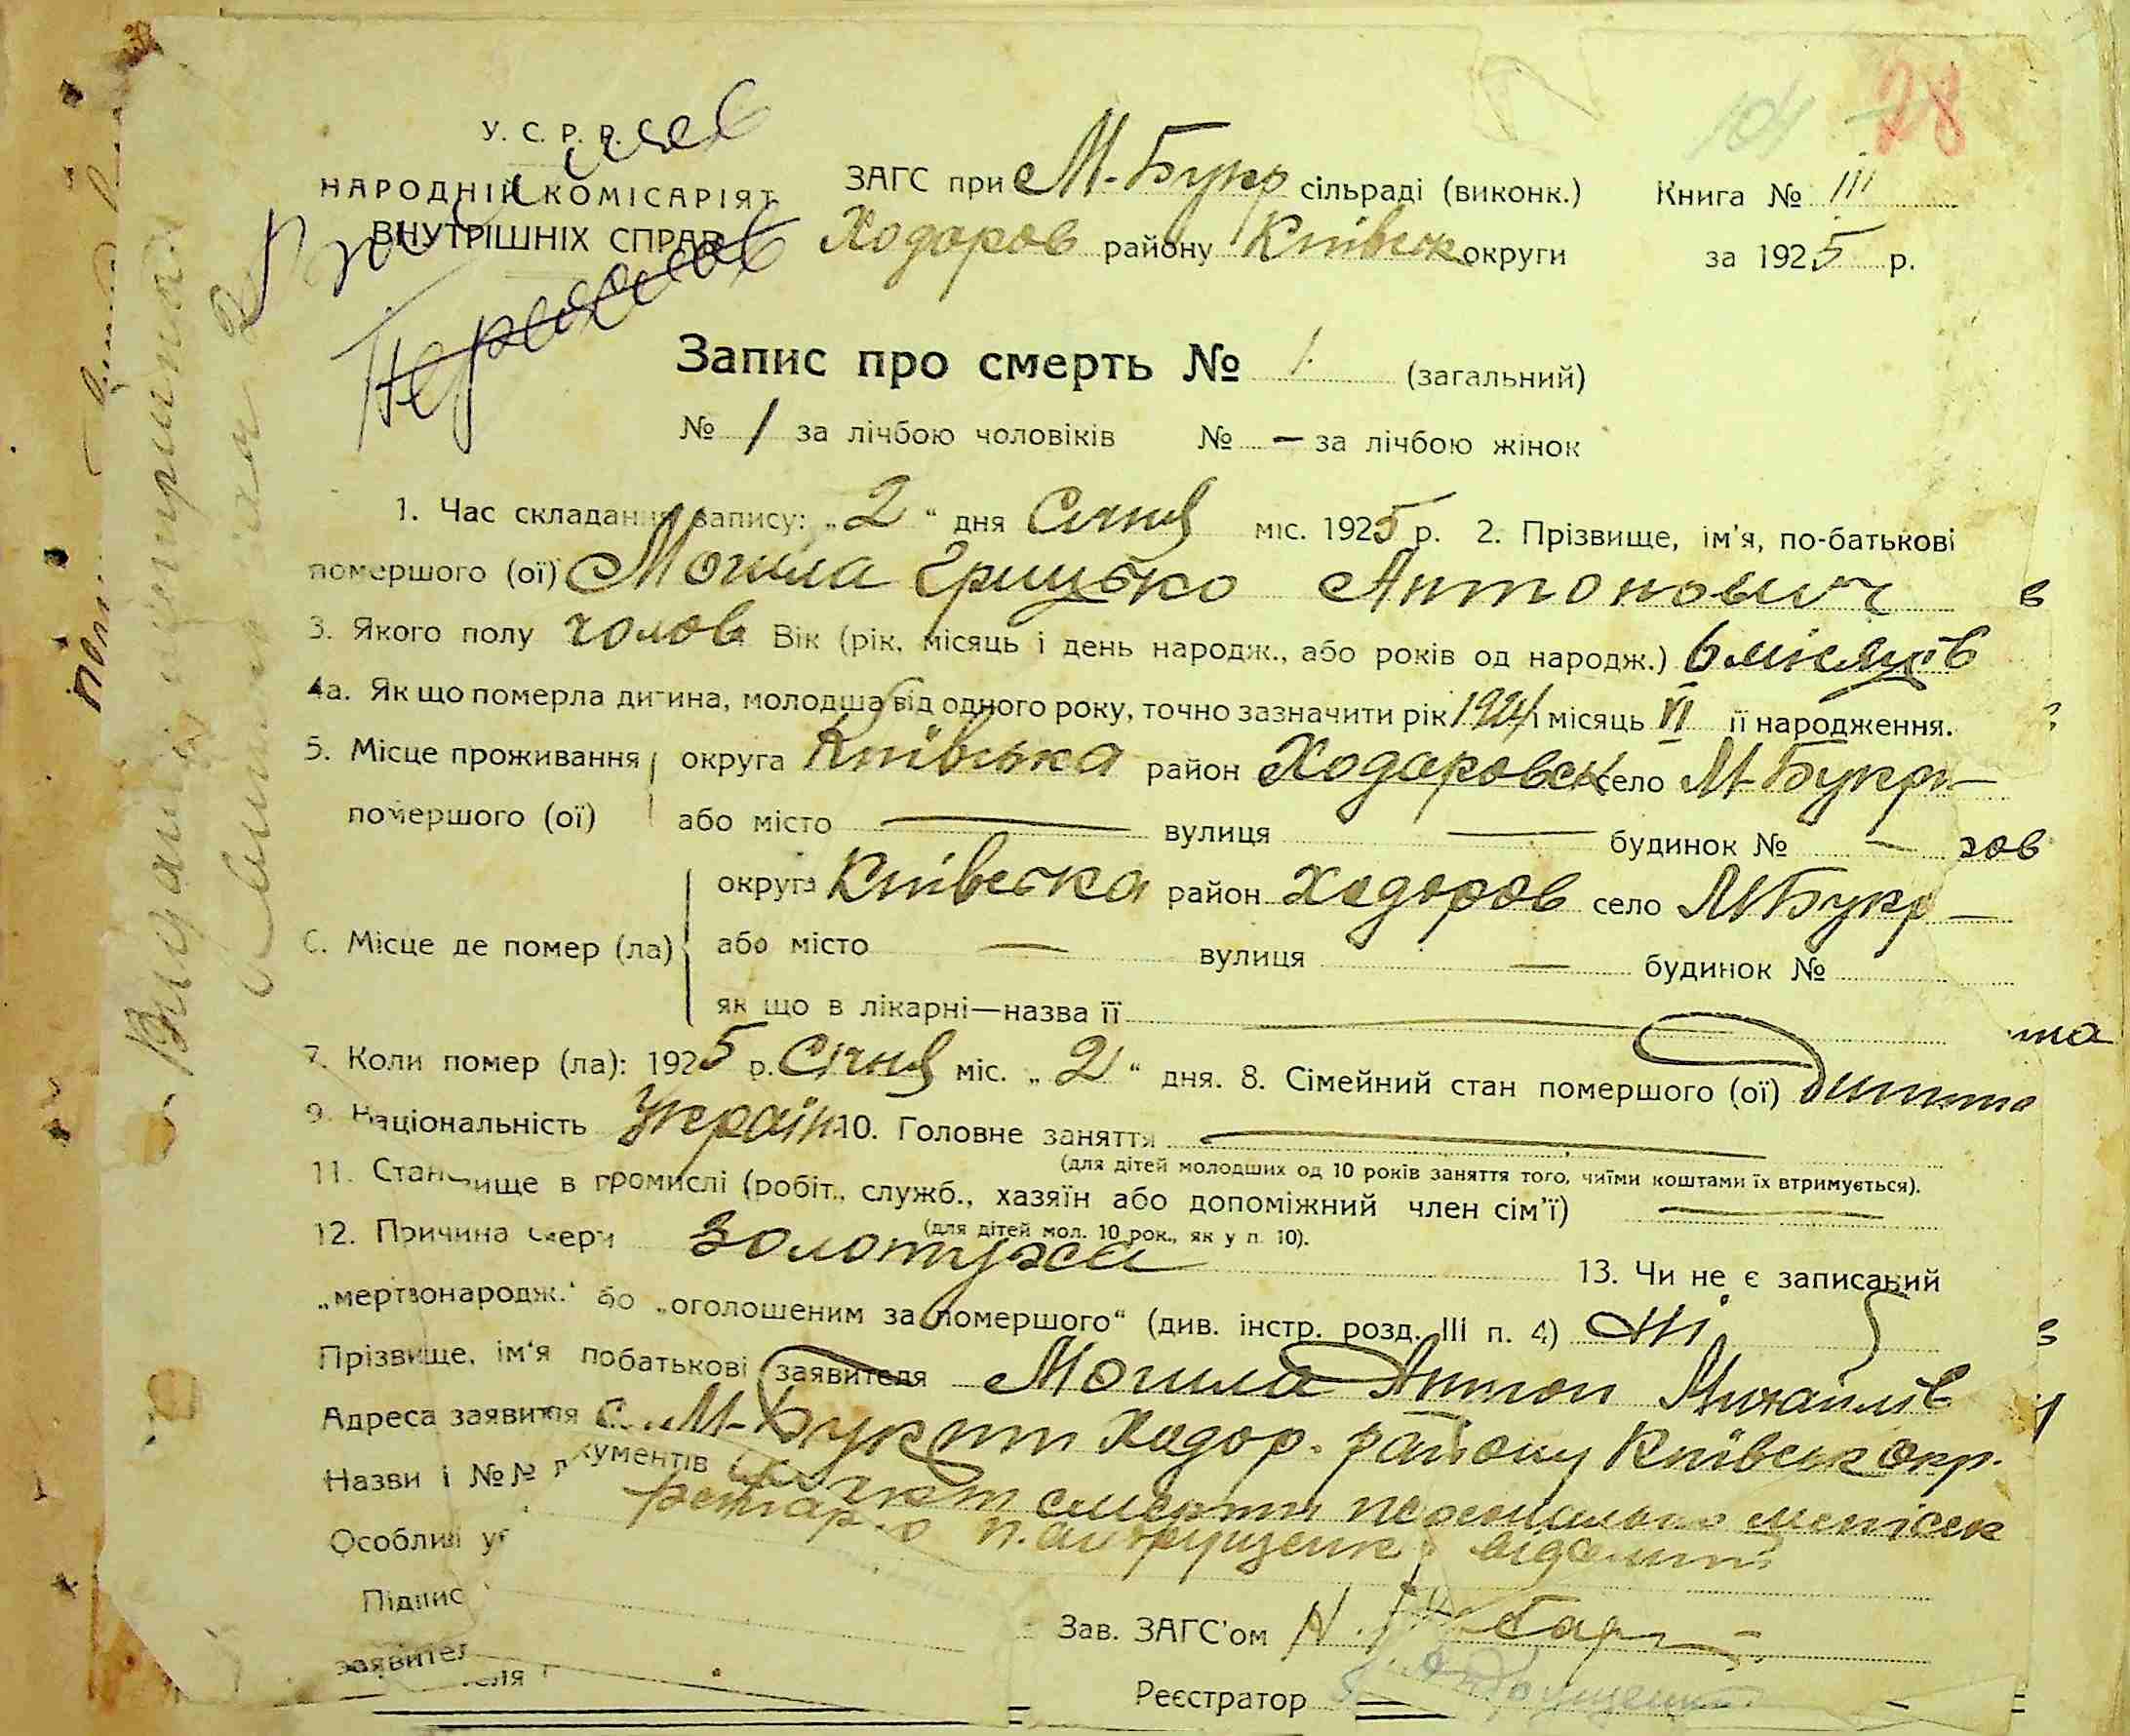 28
104
У. С. Р. Р.
НАРОДНІЙ КОМІСАРІЯТ
ВНУТРІШНІХ СПРАВ
ЗАГС при М-Букр сільраді (виконк.) Книга № III
Ходоров району Київськ округи за 1925 р.
Запис про смерть № 1. (загальний)
№ 1 за лічбою чоловіків № — за лічбою жінок
1. Час складання запису: „2“ дня Січня міс. 1925 р. 2. Прізвище, ім'я, по-батькові
помершого (ої) Могила Грицько Антонович
3. Якого полу чолов Вік (рік, місяць і день народж., або років од народж.) 6 місяців
4а. Як що померла дитина, молодша від одного року, точно зазначити рік 1924 і місяць VI її народження.
5. Місце проживання округа Київська район Ходоровск село М-Букр
помершого (ої) або місто — вулиця — будинок № —
округа Київська район Ходоров село М-Букр —
6. Місце де помер (ла) або місто — вулиця — будинок №
як що в лікарні—назва її
7. Коли помер (ла): 1925 р. Січня міс. „2“ дня. 8. Сімейний стан помершого (ої) Дитина
9. Національність Україн 10. Головне заняття —
(для дітей молодших од 10 років заняття того, чиїми коштами їх втримується).
11. Становище в промислі (робіт., служб., хазяїн або допоміжний член сім'ї) —
(для дітей мол. 10 рок., як у п. 10).
12. Причина смерти золотуха 13. Чи не є записаний
„мертвонародж.“ або „оголошеним за помершого“ (див. інстр. розд. III п. 4) Ні
Прізвище, ім'я побатькові заявителя Могила Антон Михайлів
Адреса заявителя с. М-Букрин Ходор. району Київськ окр.
Назви і №№ документів смерти
Особливі
Підпис
заявител
Зав. ЗАГС'ом
Реєстратор